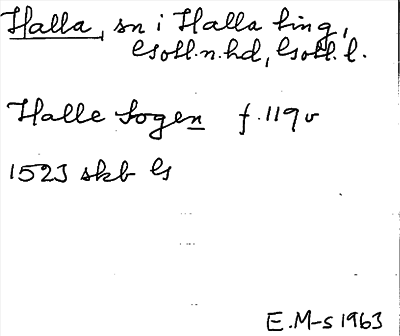 Halla, sn i Halla ting,
Gotl.n.hd, Gotl.l.
Halle Sogen f.119v
1523 skb G
E.M-s 1963